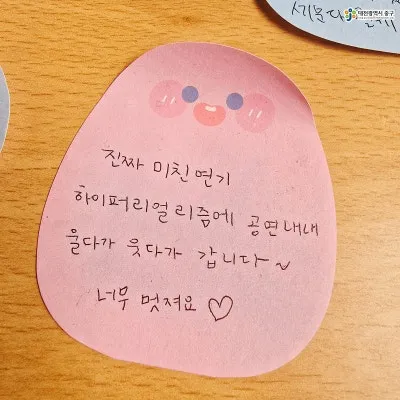 대전광역시 중구
진짜 미친연기
하이퍼리얼리즘에 공연내내
울다가 웃다가 갑니다~
너무 멋져요♡